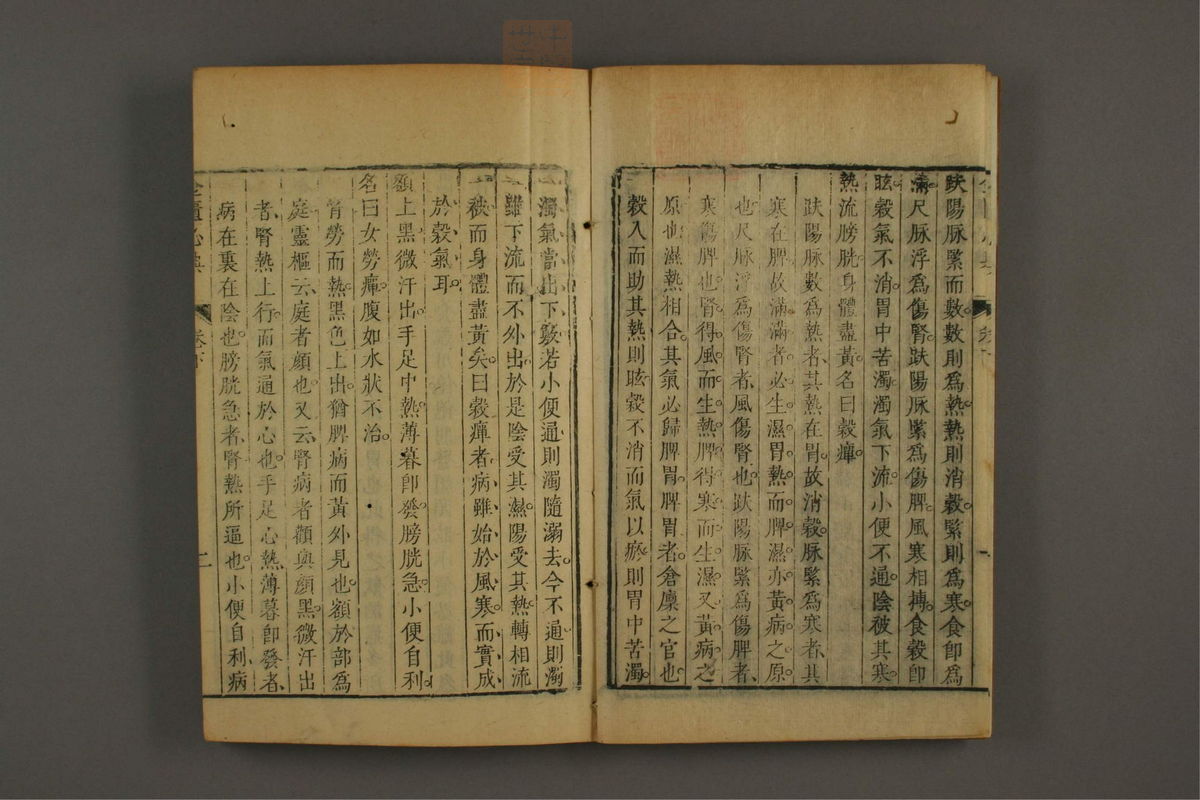 趺陽脉緊而數。數則爲熱。熱則消穀。緊則爲寒。食卽爲
滿。尺脉浮爲傷腎。趺陽脉緊爲傷脾。風寒相摶。食穀卽
眩。穀氣不消。胃中苦濁。濁氣下流。小便不通。陰被其寒。
熱流膀胱。身體盡黃。名曰穀癉。
趺陽脉數爲熱者、其熱在胃。故消穀。脉緊爲寒者、其
寒在脾。故滿。滿者必生濕。胃熱而脾濕。亦黃病之原
也。尺脉浮爲傷腎者、風傷腎也。趺陽脉緊爲傷脾者、
寒傷脾也。腎得風而生熱。脾得寒而生濕。又黃病之
原也。濕熱相合。其氣必歸脾胃。脾胃者。倉廩之官也。
穀入而助其熱則眩。穀不消而氣以瘀。則胃中苦濁。
濁氣當出下竅。若小便通。則濁隨溺去。今不通。則濁
雖下流而不外出。於是陰受其濕。陽受其熱。轉相流
被。而身體盡黃矣。曰穀癉者、病雖始於風寒、而實成
於穀氣耳。
額上黑。微汗出。手足中熱。薄暮卽發。膀胱急。小便自利。
名曰女勞癉。腹如水狀。不治。
腎勞而熱。黑色上出。猶脾病而黃外見也。額於部爲
庭。靈樞云。庭者顏也。又云。腎病者。顴與顏黑。微汗出
者、腎熱上行。而氣通於心也。手足心熱。薄暮卽發者、
病在裏在陰也。膀胱急者、腎熱所逼也。小便自利。病
卷下
二